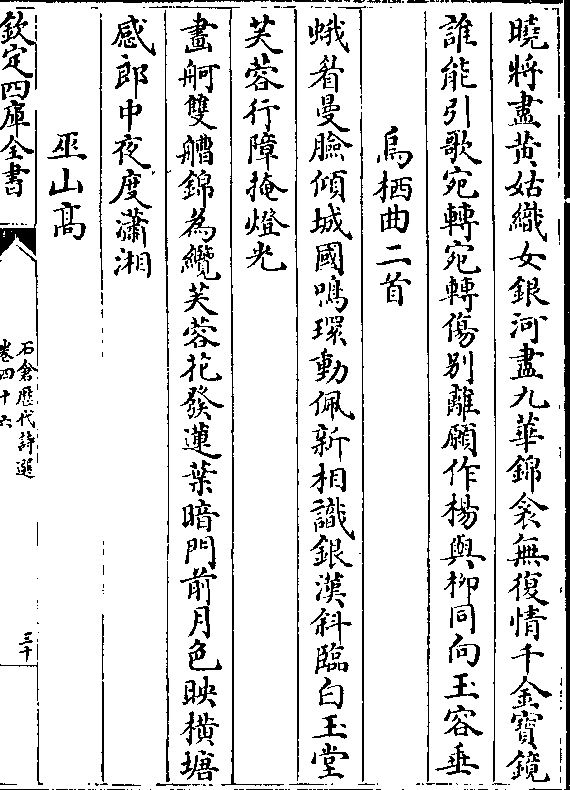 曉將盡黄姑織女銀河盡九華錦衾無復情千金寶鏡
誰能引歌宛轉宛轉傷别離願作楊與柳同向玉容垂
烏栖曲二首
蛾眉曼臉傾城國鳴環動佩新相識銀漢斜臨白玉堂
芙蓉行障掩燈光
畫舸雙艚錦為纜芙蓉花發蓮葉暗門前月色映横塘
感郎中夜度瀟湘
巫山髙
欽定四庫全書
石倉歷代詩選
卷四十六
三十